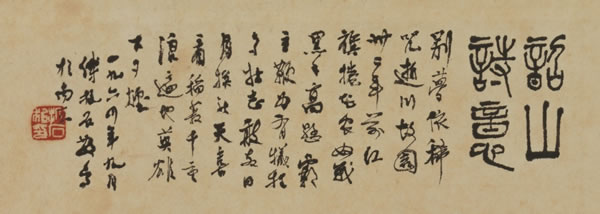 韶山
詩意
別夢依稀
咒逝川故園
卅二年前紅
旗捲起農奴戟
黑手高懸霸
主鞭為有犧牲
多壯志敢教日
月換新天喜
看稻菽千重
浪遍地英雄
下夕煙
一九六四年九月
傅抱石寫
於南京